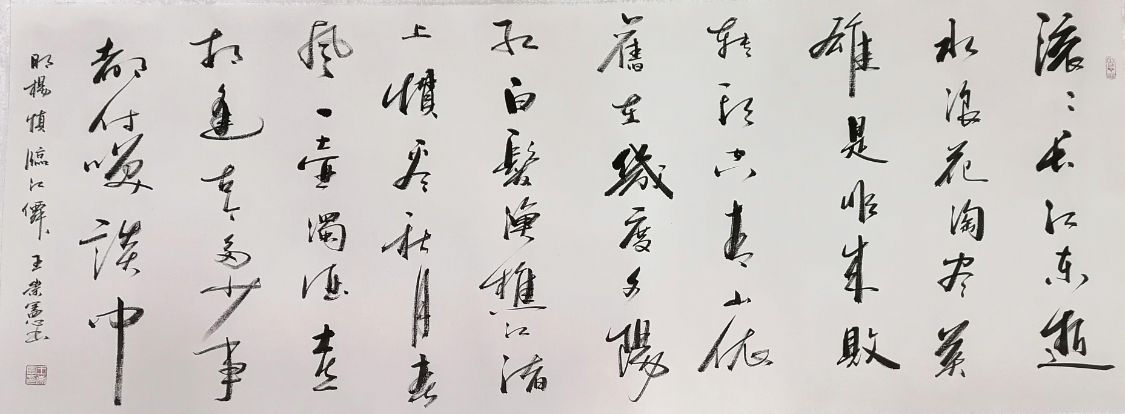 滚〻长江东逝
水浪花淘尽英
雄是非成敗
转头空青山依
舊在幾度夕陽
红白髮渔樵江渚
上惯看秋月春
风一壶濁酒喜
相逢古今多少事
都付咲談中
明楊慎臨江僊 王